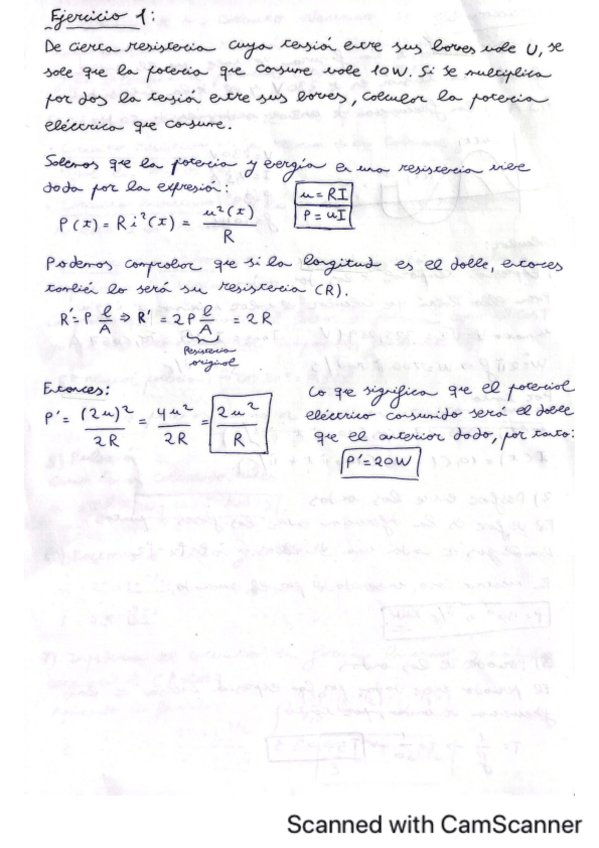 Ejercicio 1:
De cierta resistencia cuya tensión entre sus bornes vale U, se
sabe que la potencia que consume vale 10W. Si se multiplica
por dos la tensión entre sus bornes, calcular la potencia
eléctrica que consume.
Sabemos que la potencia y energía en una resistencia viene
dada por la expresión:
u = RI
P = uI
P(t) = R i²(t) = u²(t) / R
Podemos comprobar que si la longitud es el doble, entonces
también lo será su resistencia (R).
R' = ρ l/A ⇒ R' = 2ρ l/A = 2R
Resistencia
original
Entonces:
P' = (2u)² / 2R = 4u² / 2R = 2u² / R
Lo que significa que el potencial
eléctrico consumido será el doble
que el anterior dado, por tanto:
P' = 20W
Scanned with CamScanner